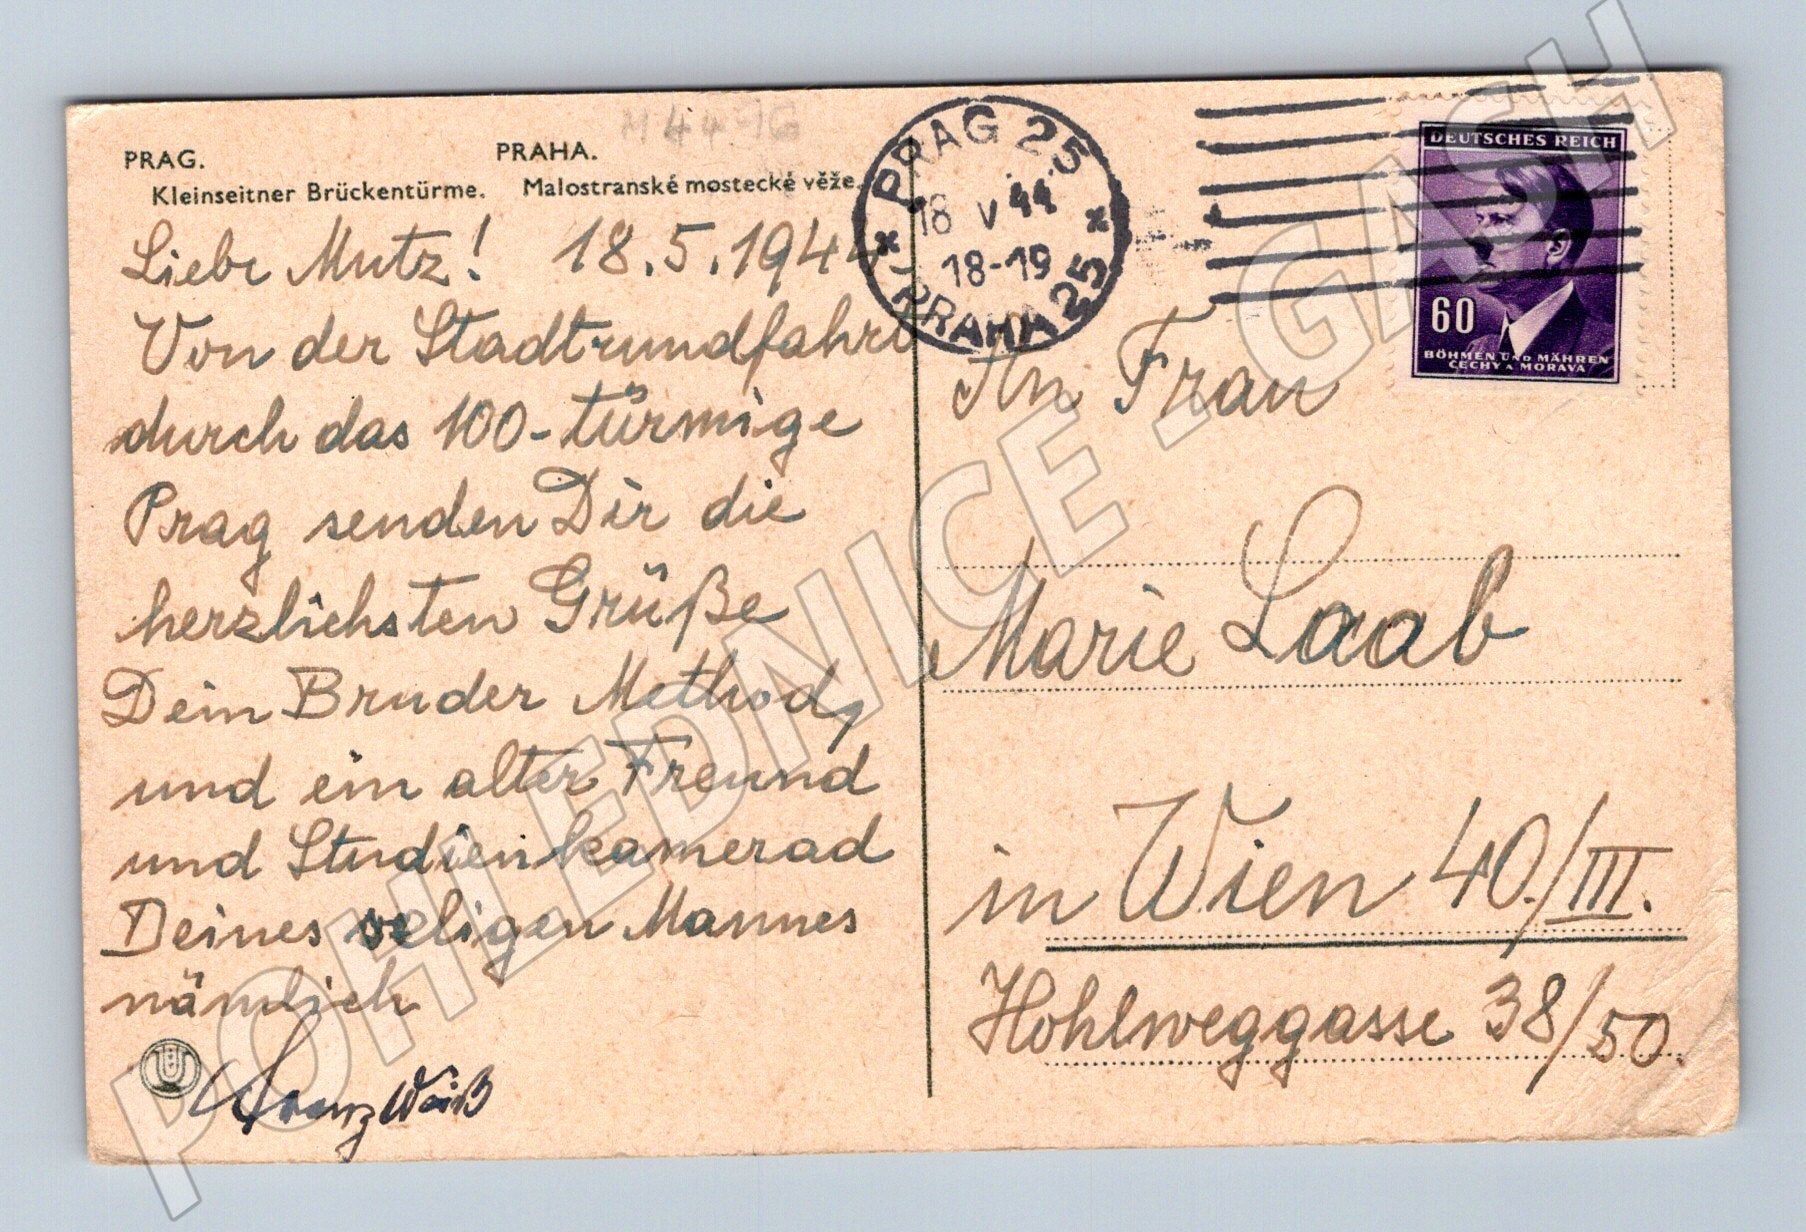 PRAG.
Kleinseitner Brückentürme.
PRAHA.
Malostranské mostecké věže.
M 44-16
Liebe Mutz! 18.5.1944
Von der Stadtrundfahrt
durch das 100-türmige
Prag senden Dir die
herzlichsten Grüße
Dein Bruder Method,
und ein alter Freund
und Studienkamerad
Deines seligen Mannes
nämlich
Franz Weiß
PRAG 25
18 V 44
18-19
PRAHA 25
DEUTSCHES REICH
60
BÖHMEN UND MÄHREN
ČECHY A MORAVA
An Frau
Marie Laab
in Wien 40./III.
Hohlweggasse 38/50.
POHLEDNICE - GASH